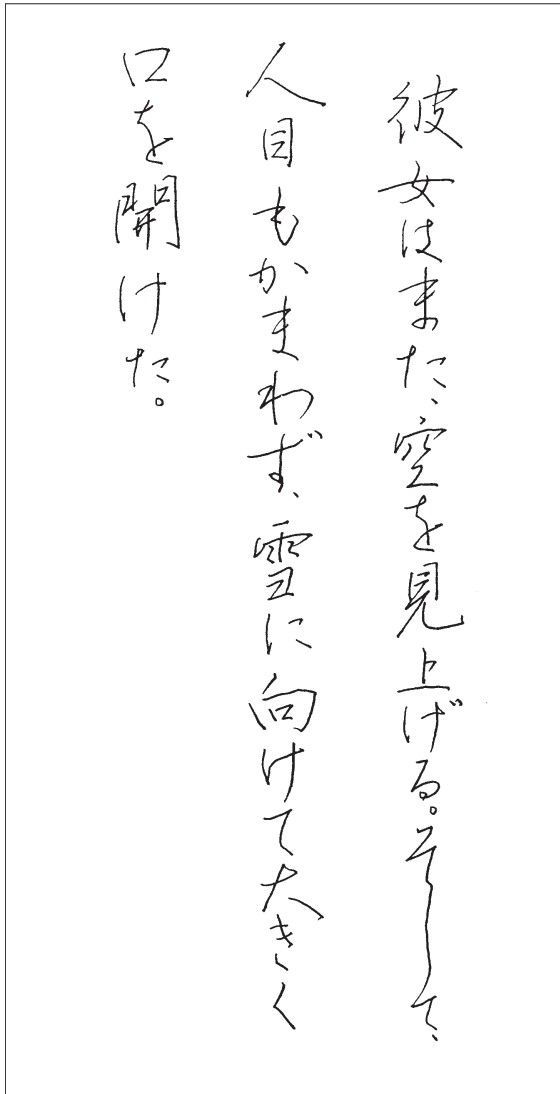 彼女はまた、空を見上げる。そして、
人目もかまわず、雪に向けて大きく
口を開けた。